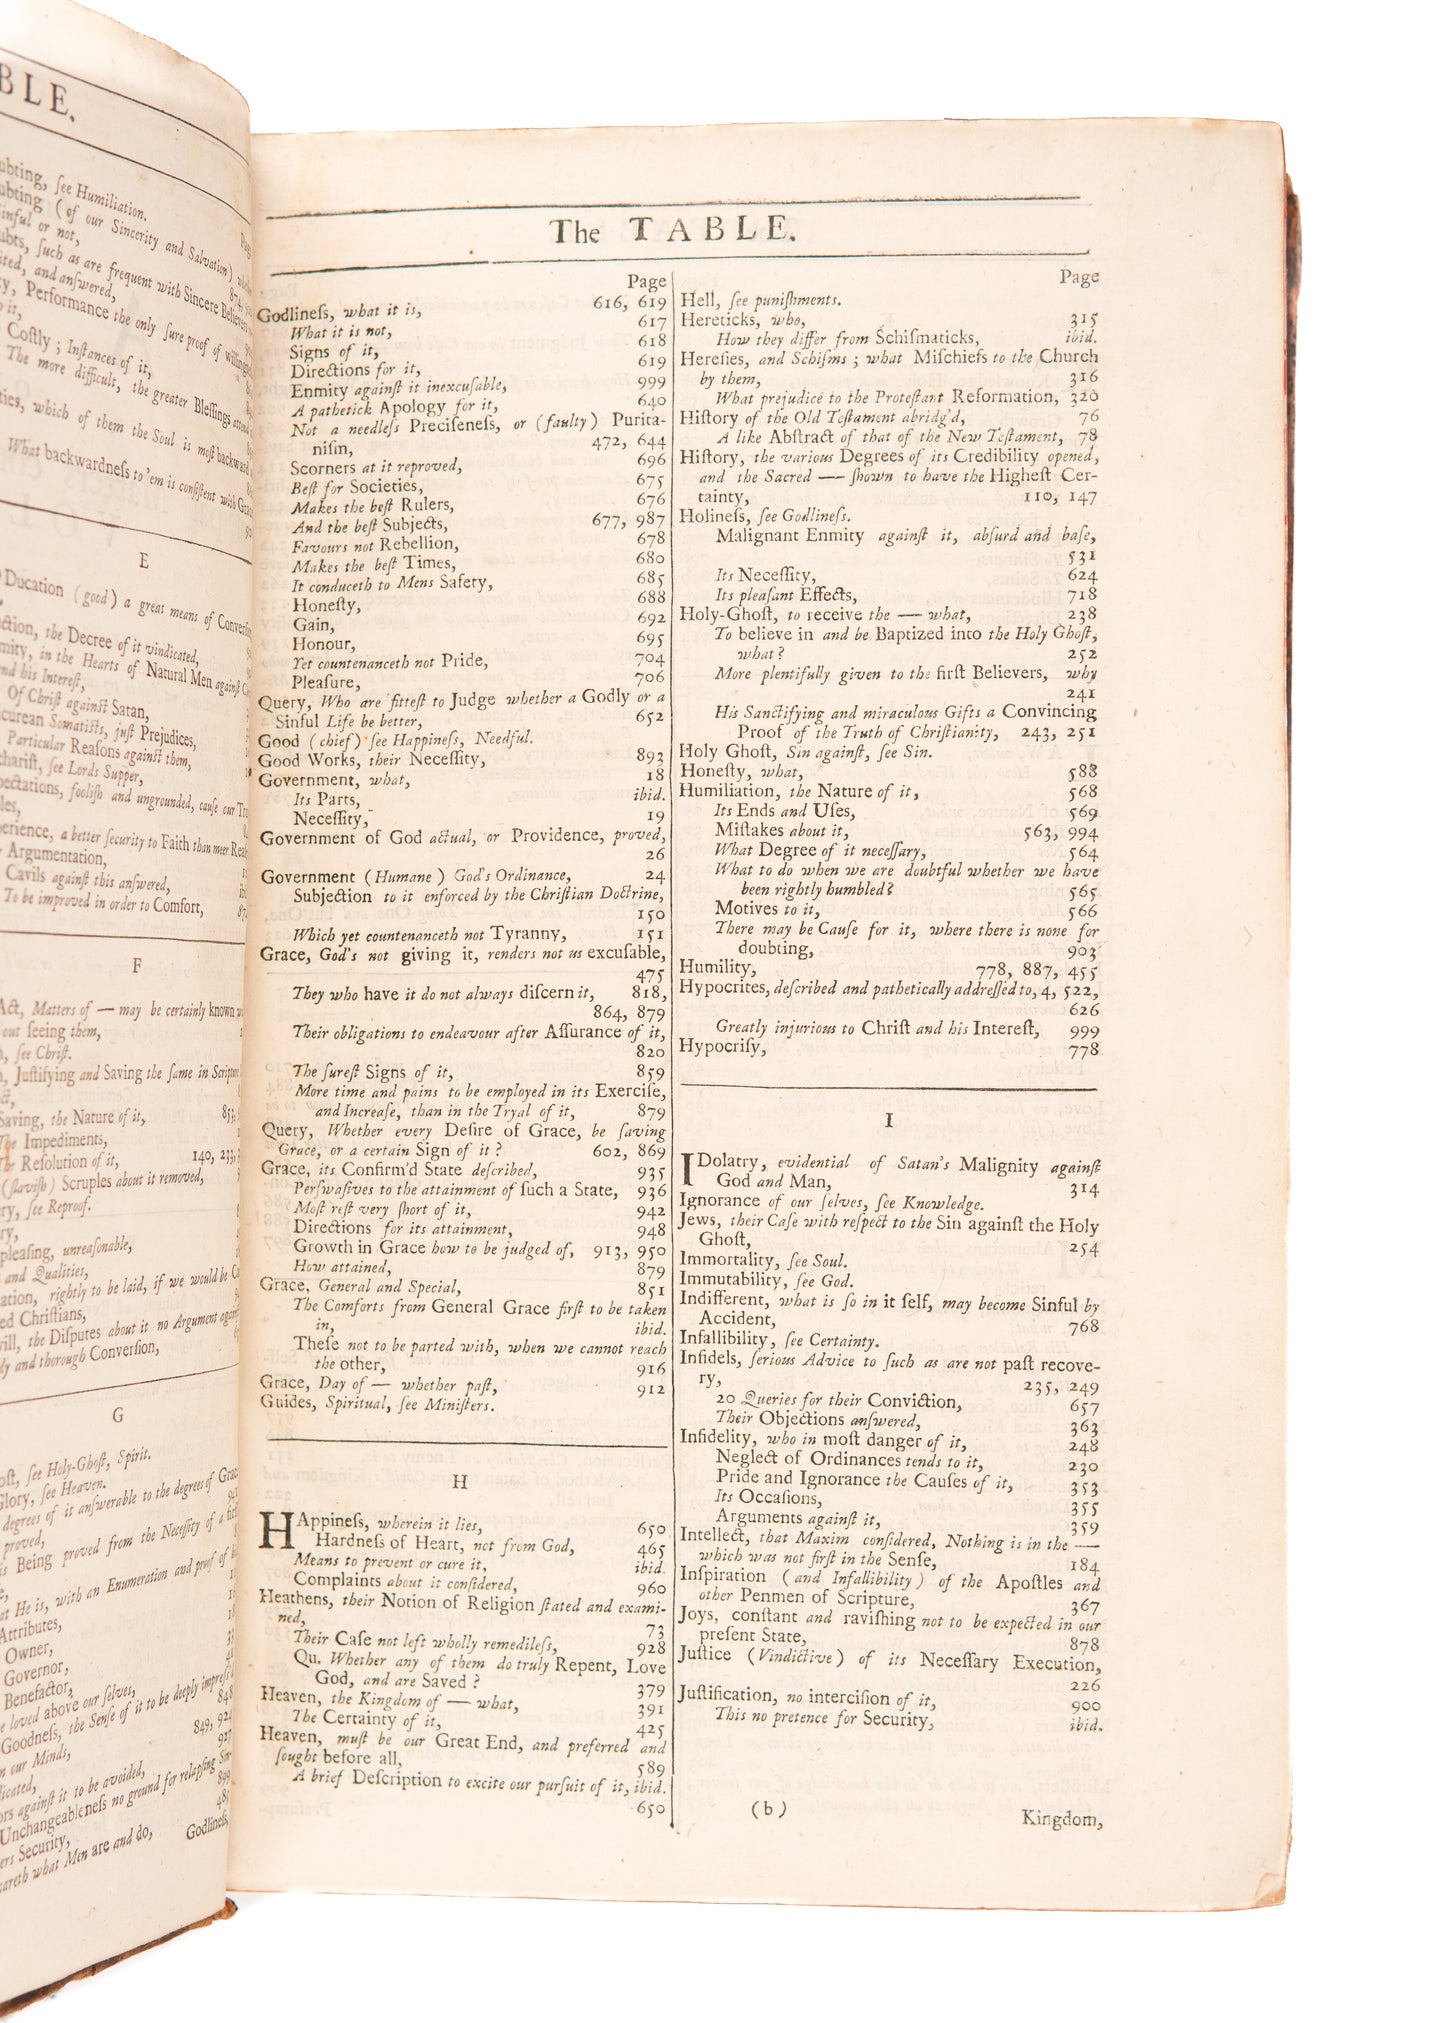 BLE.
ubting, ſee Humiliation.
ubting (of our Sincerity and Salvation)
ſinful or not,
ubts, ſuch as are frequent with Sincere
and anſwered,
Performance the only ſure proof of
Coſtly; Inſtances of it,
The more difficult, the greater Bleſſings
which of them the Soul is moſt backward
What backwardneſs to 'em is conſiſtent with
E
Ducation (good) a great means of
the Decree of it vindicated,
in the Hearts of Natural Men
his Intereſt,
Of Chriſt againſt Satan,
Somatiſts, juſt Prejudices,
Particular Reaſons againſt them,
ſee Lords Supper,
fooliſh and ungrounded, cauſe our
a better ſecurity to Faith than meer
Argumentation,
Cavils againſt this anſwered,
To be improved in order to Comfort,
F
Act, Matters of — may be certainly known
ſeeing them,
ſee Chriſt.
Juſtifying and Saving the ſame in
Saving, the Nature of it,
The Impediments,
The Reſolution of it, 140, 233,
(ſlaviſh) Scruples about it removed,
ſee Reproof.
unreaſonable,
and Qualities,
rightly to be laid, if we would be
Chriſtians,
the Diſputes about it no Argument
and thorough Converſion,
G
ſee Holy-Ghoſt, Spirit.
Glory, ſee Heaven.
degrees of it anſwerable to the degrees of
proved,
Being proved from the Neceſſity of a
He is, with an Enumeration and proof of
Attributes,
Owner,
Governor,
Benefactor,
loved above our ſelves,
Goodneſs, the Senſe of it to be deeply
our Minds, 849, 924
againſt it to be avoided,
Unchangeableneſs no ground for relapſing
Security,
what Men are and do,
Godlineſs,
The TABLE.
Page
Godlineſs, what it is, 616, 619
What it is not, 617
Signs of it, 618
Directions for it, 619
Enmity againſt it inexcuſable, 999
A pathetick Apology for it, 640
Not a needleſs Preciſeneſs, or (faulty) Purita-
niſm, 472, 644
Scorners at it reproved, 696
Beſt for Societies, 675
Makes the beſt Rulers, 676
And the beſt Subjects, 677, 987
Favours not Rebellion, 678
Makes the beſt Times, 680
It conduceth to Mens Safety, 685
Honeſty, 688
Gain, 692
Honour, 695
Yet countenanceth not Pride, 704
Pleaſure, 706
Query, Who are fitteſt to Judge whether a Godly or a
Sinful Life be better, 652
Good (chief) ſee Happineſs, Needful.
Good Works, their Neceſſity, 893
Government, what, 18
Its Parts, ibid.
Neceſſity, 19
Government of God actual, or Providence, proved,
26
Government (Humane) God's Ordinance, 24
Subjection to it enforced by the Chriſtian Doctrine,
150
Which yet countenanceth not Tyranny, 151
Grace, God's not giving it, renders not us excuſable,
475
They who have it do not always diſcern it, 818,
864, 879
Their obligations to endeavour after Aſſurance of it,
820
The ſureſt Signs of it, 859
More time and pains to be employed in its Exerciſe,
and Increaſe, than in the Tryal of it, 879
Query, Whether every Deſire of Grace, be ſaving
Grace, or a certain Sign of it? 602, 869
Grace, its Confirm'd State deſcribed, 935
Perſwaſives to the attainment of ſuch a State, 936
Moſt reſt very ſhort of it, 942
Directions for its attainment, 948
Growth in Grace how to be judged of, 913, 950
How attained, 879
Grace, General and Special, 851
The Comforts from General Grace firſt to be taken
in, ibid.
Theſe not to be parted with, when we cannot reach
the other, 916
Grace, Day of — whether paſt, 912
Guides, Spiritual, ſee Miniſters.
H
HAppineſs, wherein it lies, 650
Hardneſs of Heart, not from God, 465
Means to prevent or cure it, ibid.
Complaints about it conſidered, 960
Heathens, their Notion of Religion ſtated and exami-
ned, 73
Their Caſe not left wholly remedileſs, 928
Qu. Whether any of them do truly Repent, Love
God, and are Saved? 379
Heaven, the Kingdom of — what, 391
The Certainty of it, 425
Heaven, muſt be our Great End, and preferred and
ſought before all, 589
A brief Deſcription to excite our purſuit of it, ibid.
650
Page
Hell, ſee puniſhments.
Hereticks, who, 315
How they differ from Schiſmaticks, ibid.
Hereſies, and Schiſms; what Miſchiefs to the Church
by them, 316
What prejudice to the Proteſtant Reformation, 320
Hiſtory of the Old Teſtament abridg'd, 76
A like Abſtract of that of the New Teſtament, 78
Hiſtory, the various Degrees of its Credibility opened,
and the Sacred — ſhown to have the Higheſt Cer-
tainty, 110, 147
Holineſs, ſee Godlineſs.
Malignant Enmity againſt it, abſurd and baſe,
531
Its Neceſſity, 624
Its pleaſant Effects, 718
Holy-Ghoſt, to receive the — what, 238
To believe in and be Baptized into the Holy Ghoſt,
what? 252
More plentifully given to the firſt Believers, why
241
His Sanctifying and miraculous Gifts a Convincing
Proof of the Truth of Chriſtianity, 243, 251
Holy Ghoſt, Sin againſt, ſee Sin.
Honeſty, what, 588
Humiliation, the Nature of it, 568
Its Ends and Uſes, 569
Miſtakes about it, 563, 994
What Degree of it neceſſary, 564
What to do when we are doubtful whether we have
been rightly humbled? 565
Motives to it, 566
There may be Cauſe for it, where there is none for
doubting, 903
Humility, 778, 887, 455
Hypocrites, deſcribed and pathetically addreſſed to, 4, 522,
626
Greatly injurious to Chriſt and his Intereſt, 999
Hypocriſy, 778
I
IDolatry, evidential of Satan's Malignity againſt
God and Man, 314
Ignorance of our ſelves, ſee Knowledge.
Jews, their Caſe with reſpect to the Sin againſt the Holy
Ghoſt, 254
Immortality, ſee Soul.
Immutability, ſee God.
Indifferent, what is ſo in it ſelf, may become Sinful by
Accident, 768
Infallibility, ſee Certainty.
Infidels, ſerious Advice to ſuch as are not paſt recove-
ry, 235, 249
20 Queries for their Conviction, 657
Their Objections anſwered, 363
Infidelity, who in moſt danger of it, 248
Neglect of Ordinances tends to it, 230
Pride and Ignorance the Cauſes of it, 353
Its Occaſions, 355
Arguments againſt it, 359
Intellect, that Maxim conſidered, Nothing is in the —
which was not firſt in the Senſe, 184
Inſpiration (and Infallibility) of the Apoſtles and
other Penmen of Scripture, 367
Joys, conſtant and raviſhing not to be expected in our
preſent State, 878
Juſtice (Vindictive) of its Neceſſary Execution,
226
Juſtification, no interciſion of it, 900
This no pretence for Security, ibid.
(b)
Kingdom,